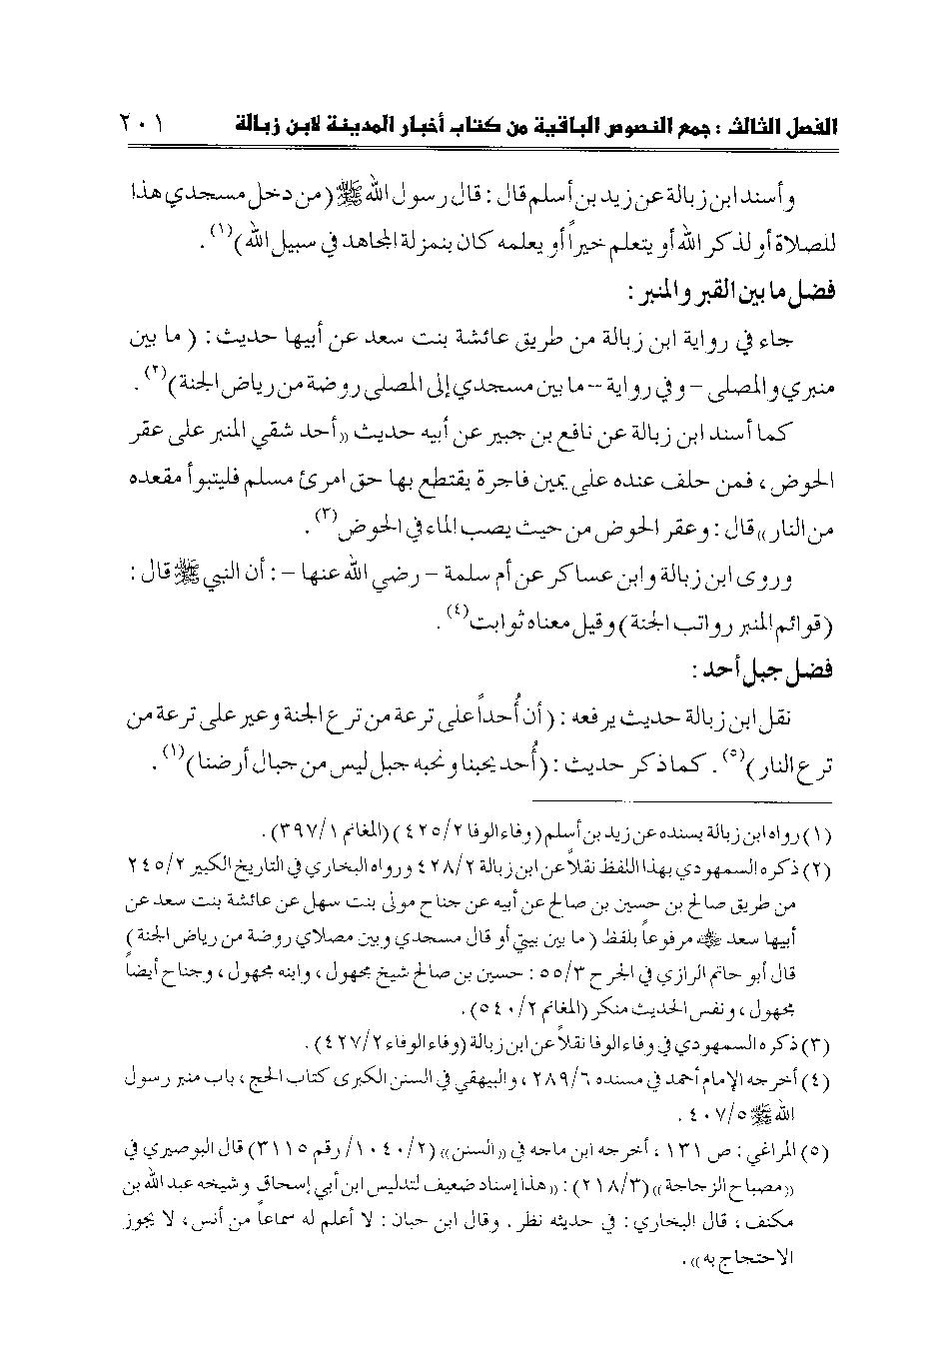 الفصل الثالث : جمع النصوص الباقية من كتاب أخبار المدينة لابن زبالة ٢٠١
وأسند ابن زبالة عن زيد بن أسلم قال : قال رسول الله ﷺ (من دخل مسجدي هذا
للصلاة أو لذكر الله أو يتعلم خيراً أو يعلمه كان بنمزلة المجاهد في سبيل الله)(١) .
فضل ما بين القبر والمنبر :
جاء في رواية ابن زبالة من طريق عائشة بنت سعد عن أبيها حديث : ( ما بين
منبري والمصلى – وفي رواية -– ما بين مسجدي إلى المصلى روضة من رياض الجنة)(٢) .
كما أسند ابن زبالة عن نافع بن جبير عن أبيه حديث «أحد شقي المنبر على عقر
الحوض ، فمن حلف عنده على يمين فاجرة يقتطع بها حق امرئ مسلم فليتبوأ مقعده
من النار» قال : وعقر الحوض من حيث يصب الماء في الحوض(٣) .
وروى ابن زبالة وابن عساكر عن أم سلمة – رضي الله عنها – : أن النبي ﷺ قال :
(قوائم المنبر رواتب الجنة) وقيل معناه ثوابت(٤) .
فضل جبل أحد :
نقل ابن زبالة حديث يرفعه : ( أن أُحداً على ترعة من ترع الجنة وعير على ترعة من
ترع النار)(٥) . كما ذكر حديث : (أُحد يحبنا ونحبه جبل ليس من جبال أرضنا)(١) .
(١) رواه ابن زبالة بسنده عن زيد بن أسلم (وفاء الوفا ٤٢٥/٢) (المغانم ٣٩٧/١) .
(٢) ذكره السمهودي بهذا اللفظ نقلاً عن ابن زبالة ٤٢٨/٢ ورواه البخاري في التاريخ الكبير ٢٤٥/٢
من طريق صالح بن حسين بن صالح عن أبيه عن جناح مولى بنت سهل عن عائشة بنت سعد عن
أبيها سعد ﷺ مرفوعاً بلفظ ( ما بين بيتي أو قال مسجدي وبين مصلاي روضة من رياض الجنة )
قال أبو حاتم الرازي في الجرح ٥٥/٣ : حسين بن صالح شيخ مجهول ، وابنه مجهول ، وجناح أيضاً
مجهول ، ونفس الحديث منكر (المغانم ٥٤٠/٢) .
(٣) ذكره السمهودي في وفاء الوفا نقلاً عن ابن زبالة (وفاء الوفاء ٤٢٧/٢) .
(٤) أخرجه الإمام أحمد في مسنده ٢٨٩/٦ ، والبيهقي في السنن الكبرى كتاب الحج ، باب منبر رسول
الله ﷺ ٤٠٧/٥ .
(٥) المراغي : ص ١٣١ ، أخرجه ابن ماجه في «السنن» (١٠٤٠/٢/ رقم ٣١١٥) قال البوصيري في
«مصباح الزجاجة» (٢١٨/٣) : «هذا إسناد ضعيف لتدليس ابن أبي إسحاق وشيخه عبد الله بن
مكنف ، قال البخاري : في حديثه نظر . وقال ابن حبان : لا أعلم له سماعاً من أنس ، لا يجوز
الاحتجاج به» .